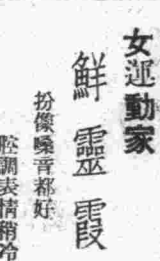 女運動家
鮮靈霞
扮像嗓音都好
腔調表情稍冷